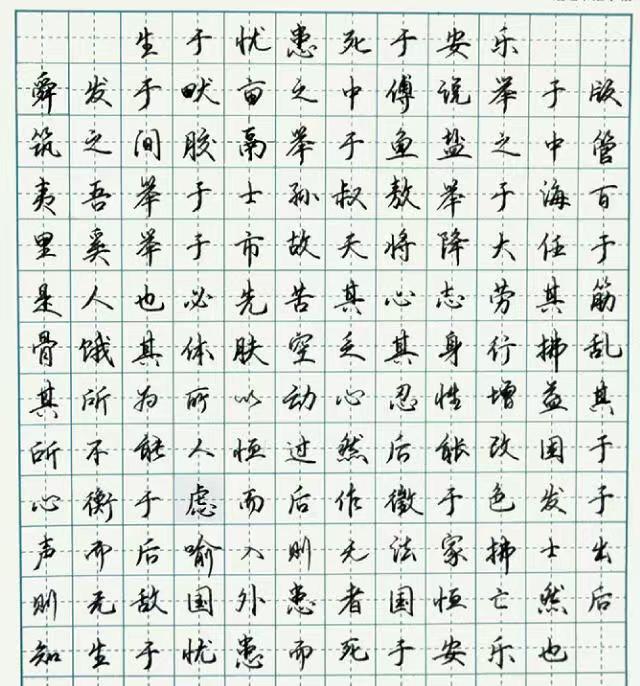 生于忧患死于安乐
舜发于畎亩之中傅说举于版
筑之间胶鬲举于鱼盐之中管
夷吾举于士孙叔敖举于海百
里奚举于市故天将降大任于
是人也必先苦其心志劳其筋
骨饿其体肤空乏其身行拂乱
其所为所以动心忍性增益其
所不能人恒过然后能改困于
心衡于虑而后作徵于色发于
声而后喻入则无法家拂士出
则无敌国外患者国恒亡然后
知生于忧患而死于安乐也